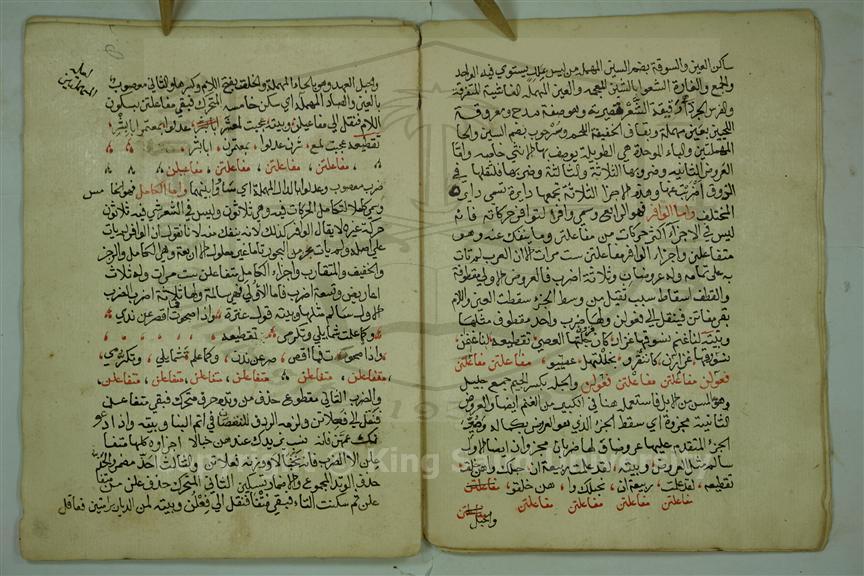 ساكن العين والسوقة بضم السين المهملة من ليس ملك يستوي فيه الواحد
والجمع والغارة الشعوا بالشين المعجمة والعين المهملة الفاشية المتفرقة
والفرس الجرداء رقيقة الشعر قصيرته وهو صفة مدح ومعروقة
اللحيين بعين مهملة وبقاف الخفيفة اللحم وسرحوب بضم السين والحا
المهملتين والباء الموحدة هي الطويلة يوصف بها الانثى خاصة واما
العروض الثانية وضربها الثلاثة والثالثة وضربها
وهذه الاجزاء الثلاثة تجمعها دايرة تسمى دايرة
المختلف واما الوافر فهو الرابع وسمى وافرا لتوافر حركاته فانه
ليس في الاجزاء اكثر حركات من مفاعلتن وما ينفك عنه وهو
متفاعلن واجزاء الوافر مفاعلتن ست مرات الا ان العرب لم تات
به على تمامه وله عروضان وثلاثة اضرب فالعروض الاولى مقطوفة
والقطف اسقاط سبب ثقيل من وسط الجزء سقطت العين واللام
بقي مفاتن فينقل الى فعولن ولها ضرب واحد مقطوف مثلها
وبيته لنا غنم نسوقها غزار كان قرون جلتها العصي تقطيعه لنا غنمن
نسوقها غزارن كانن قرو نجللتهل عصيو مفاعلتن مفاعلتن
فعولن مفاعلتن مفاعلتن فعولن والجلة بكسر الجيم جمع جليل
وهو المسن من الابل فاستعمله هنا في الكبير من الغنم ايضا والعروض
الثانية مجزوة اي سقط الجزء الذي هو العروض بكماله
الجزء المتقدم عليها عروضا ولها ضربان مجزوان ايضا الاول
سالم مثل العروض وبيته لقد علمت ربيعة ان حبلك واهن خلق
تقطيعه لقد علمت ربيعة ان نحبلك وا هنن خلقو مفاعلتن
مفاعلتن مفاعلتن مفاعلتن مفاعلتن
والحبل
والحبل العهد وهو بالحاء المهملة والخلق بفتح اللام وكسرها والثاني معصوب
بالعين والصاد المهملة اي سكن خامسه المتحرك فبقي مفاعلتن بسكون
اللام فنقل الى مفاعيلن وبيته عجبت لمعشر عدلوا بمعتمر ابا بشر
تقطيعه عجبت لمع شرن عدلوا بمعتمرن ابا بشر
مفاعلتن مفاعلتن مفاعلتن مفاعيلن
ضرب معصوب وعدلوا بالدال المهملة اي سووا بينهما واما الكامل فهو الخامس
وسمي كاملا لتكامل الحركات فيه وهي ثلاثون وليس في الشعر شي فيه ثلاثون
حركة غيره لا يقال الوافر كذلك لانه ينفك منه لانا نقول ان الوافر لم يات
على اصله ولم يات من البحور تاما غير معلول الا اربعة وهي الكامل والرجز
والخفيف والمتقارب واجزاء الكامل متفاعلن ست مرات وله ثلاث
اعاريض وتسعة اضرب فاما الاولى فهي سالمة ولها ثلاثة اضرب الضرب
الاول سالم مثلها وبيته قول عنترة واذا صحوت فما اقصر عن ندى
وكما علمت شمايلي وتكرمي تقطيعه
واذا صحو تفما اقص صر عن ندن وكما علم تشمايلي وتكررمي
متفاعلن متفاعلن متفاعلن متفاعلن متفاعلن متفاعلن
والضرب الثاني مقطوع حذف من وتده حرف متحرك فبقي متفاعل
فنقل الى فعلاتن ولزمه الردف للنقصان في اتم البنا وبيته واذا دعو
نك عمهن فانه نسب يزيدك عندهن خبالا اجزاوه كلها متفا
علن الا الضرب فانه خبالا ووزنه فعلاتن والثالث احذ مضمر والحذذ
حذف الوتد المجموع والاضمار تسكين الثاني المتحرك حذف علن من متفا
علن ثم سكنت التاء فبقي متفا فنقل الى فعلن وبيته لمن الديار برامتين فعاقل